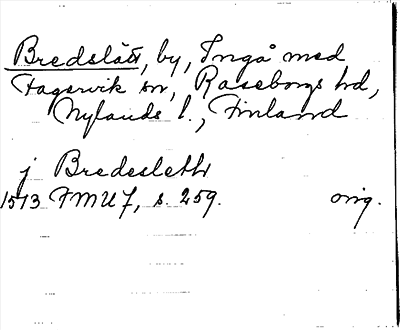 Bredslätt, by, Ingå med
Fagervik sn, Raseborgs hd,
Nylands l., Finland
j Bredesleth
1513 FMU 7, s. 259. orig.